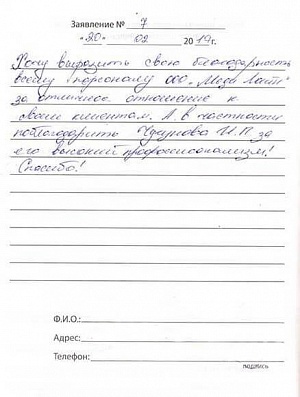 Заявление № 7
"20" 02 2017 г.
Хочу выразить свою благодарность
всему персоналу ООО „Меди Лайт"
за отличное отношение к
своим клиентам. А в частности
поблагодарить И.П. за
его высокий профессионализм!
Спасибо!
Ф.И.О.:
Адрес:
Телефон:
подпись